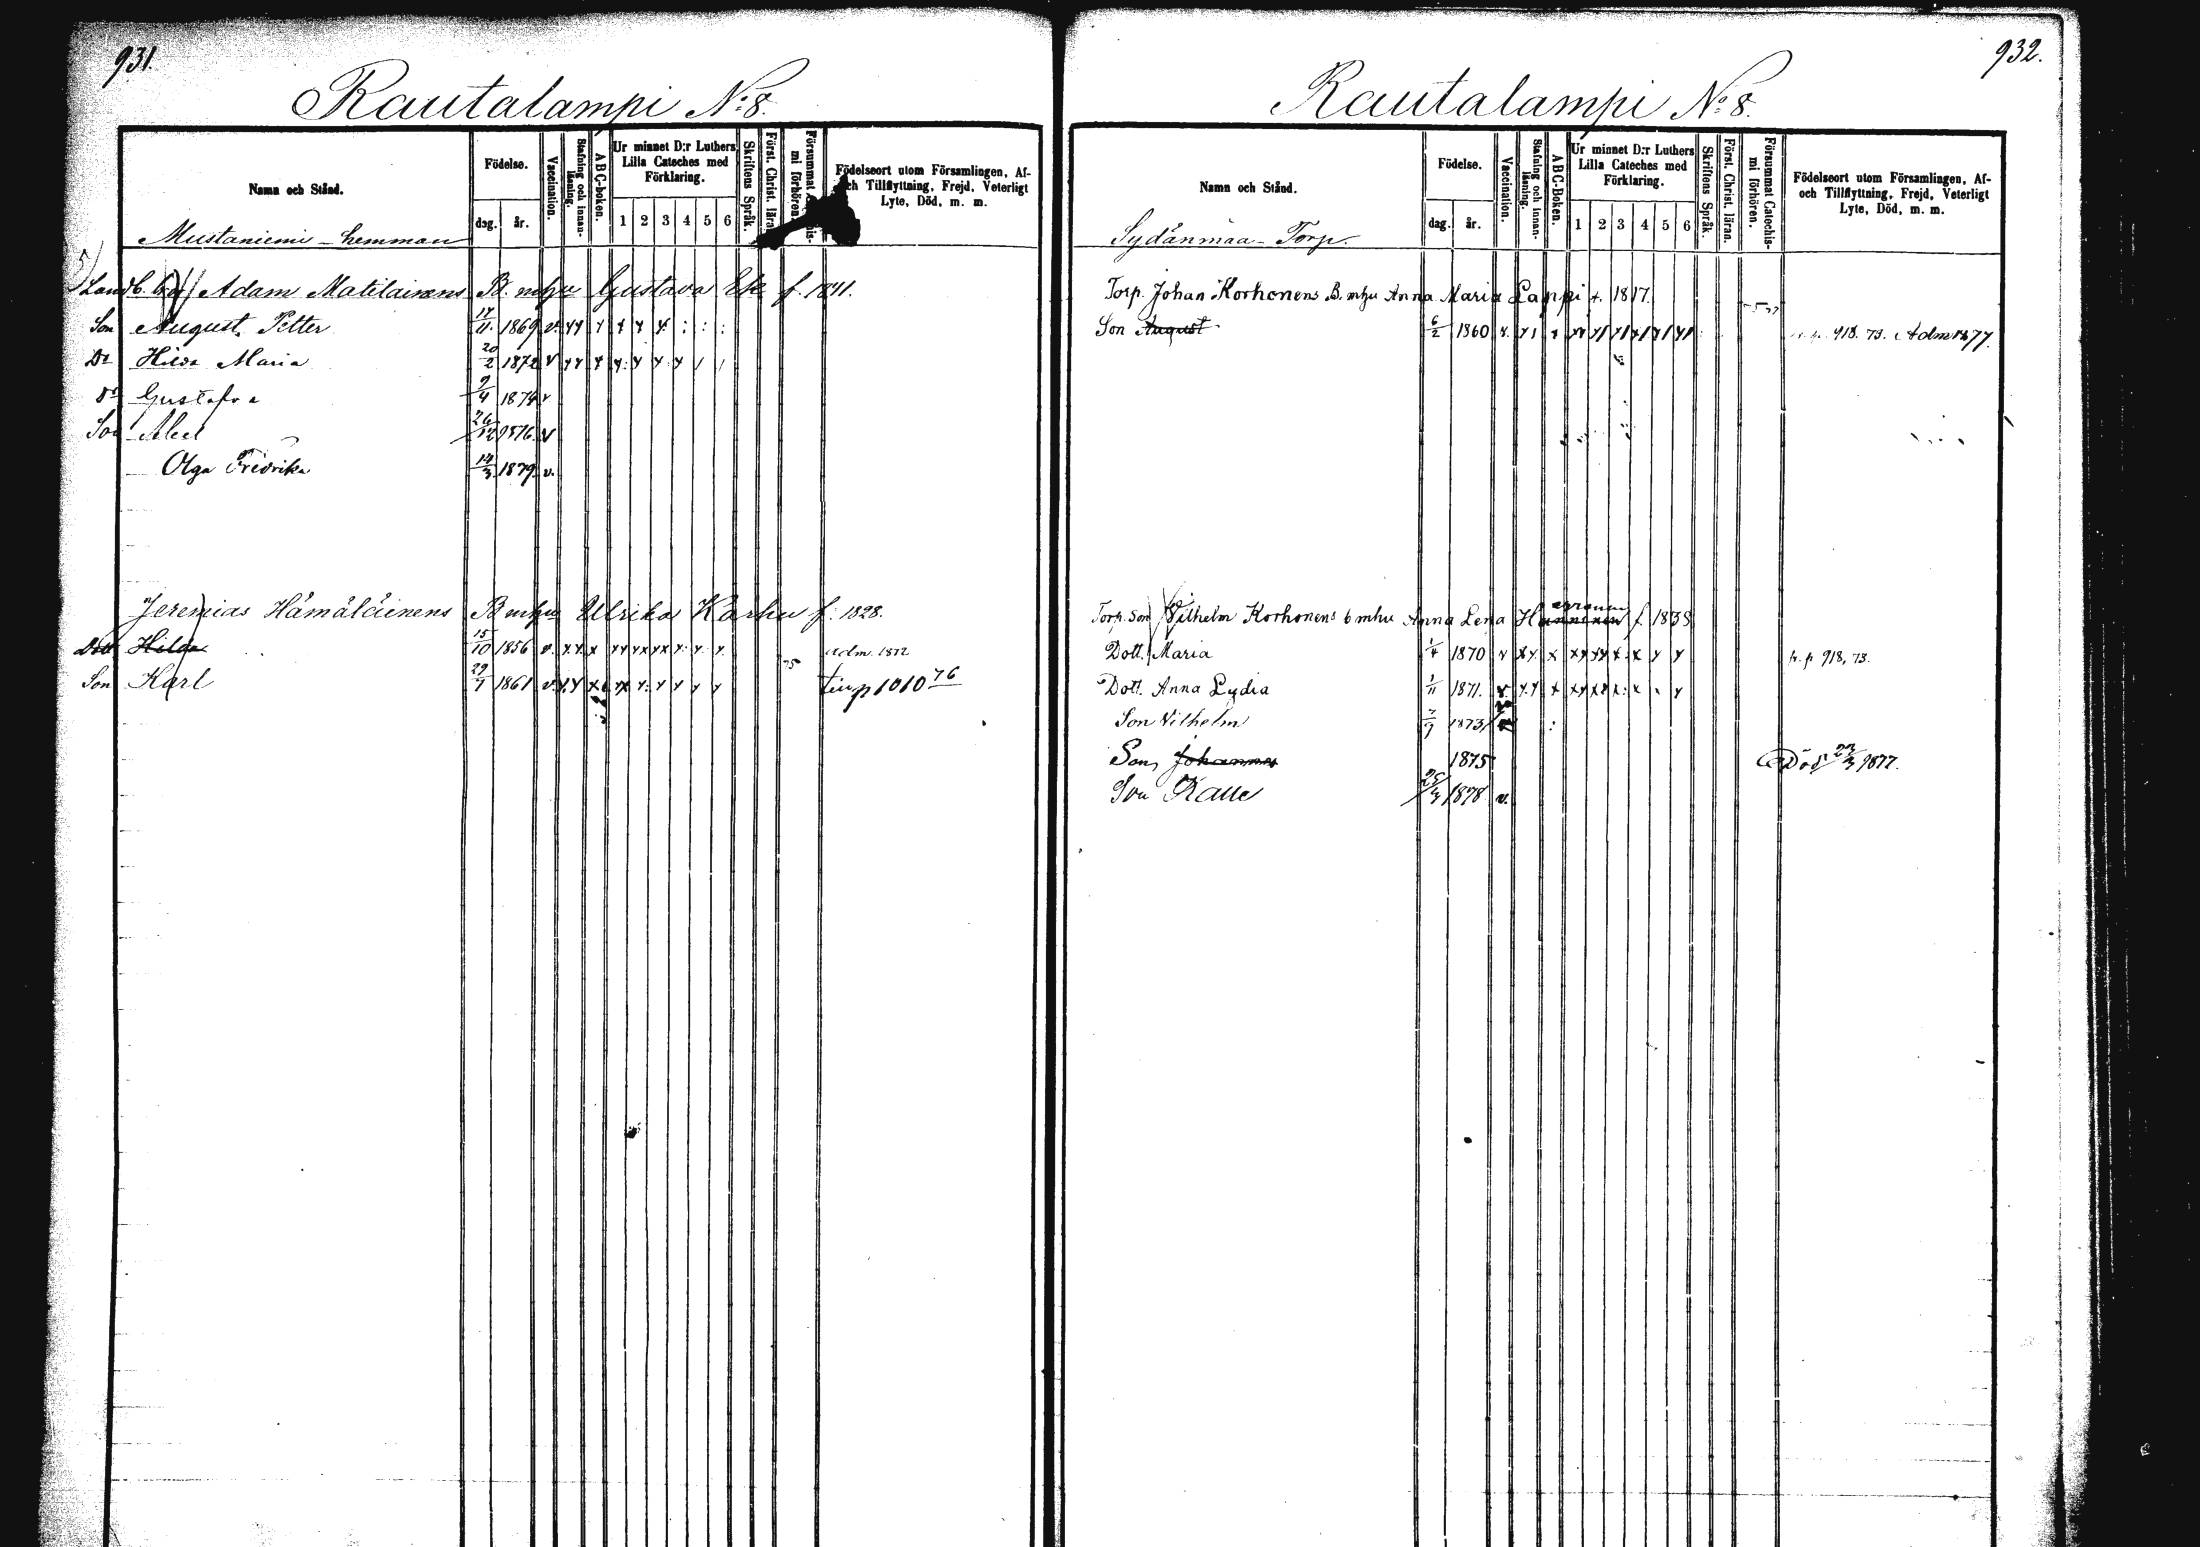 931.
Rautalampi No: 8.
Namn och Stånd.
Födelse.
dag.
år.
Vaccination.
Stafning och innanläsning.
ABC-boken.
Ur minnet D:r Luthers Lilla Cateches med Förklaring.
1 2 3 4 5 6
Skriftens Språk.
Först. Christ. läran.
Försummat
mi förhören.
Födelseort utom Församlingen, Af- och Tillflyttning, Frejd, Veterligt Lyte, Död, m. m.
Mustaniemi - hemman
Adam Matilainens B. mhu Gustava Ek f. 1841.
Son August Petter 17/11 1869 v
Dr Hilda Maria 20/2 1872 v
Dr Gustafva 9/4 1874 v
Son Abel 26/12 1876 v
Olga Fredrika 14/3 1879 v.
Jeremias Hämäläinens B mhu Ulrika Karhu f. 1828.
Dott Hilda 15/10 1856 v. adm. 1872
Son Karl 29/7 1861 v. 75 p 1010 76
932.
Rautalampi No: 8.
Namn och Stånd.
Födelse.
dag.
år.
Vaccination.
Stafning och innanläsning.
ABC-Boken.
Ur minnet D:r Luthers Lilla Cateches med Förklaring.
1 2 3 4 5 6
Skriftens Språk.
Först. Christ. läran.
Försummat Catechismi förhören.
Födelseort utom Församlingen, Af- och Tillflyttning, Frejd, Veterligt Lyte, Död, m. m.
Sydänmaa - Torp.
Torp. Johan Korhonens B. mhu Anna Maria Lappi f. 1817.
Son August 6/2 1860 918. 73. Adm 1877.
Torp. Son Vilhelm Korhonens b mhu Anna Lena f 1838
Dott. Maria 1/4 1870 fr. p 918, 73.
Dott. Anna Lydia 1/11 1871.
Son Vilhelm 7/9 1873
Son Johannes 1875 Död 23/3 1877.
Son Kalle 25/3 1878 v.